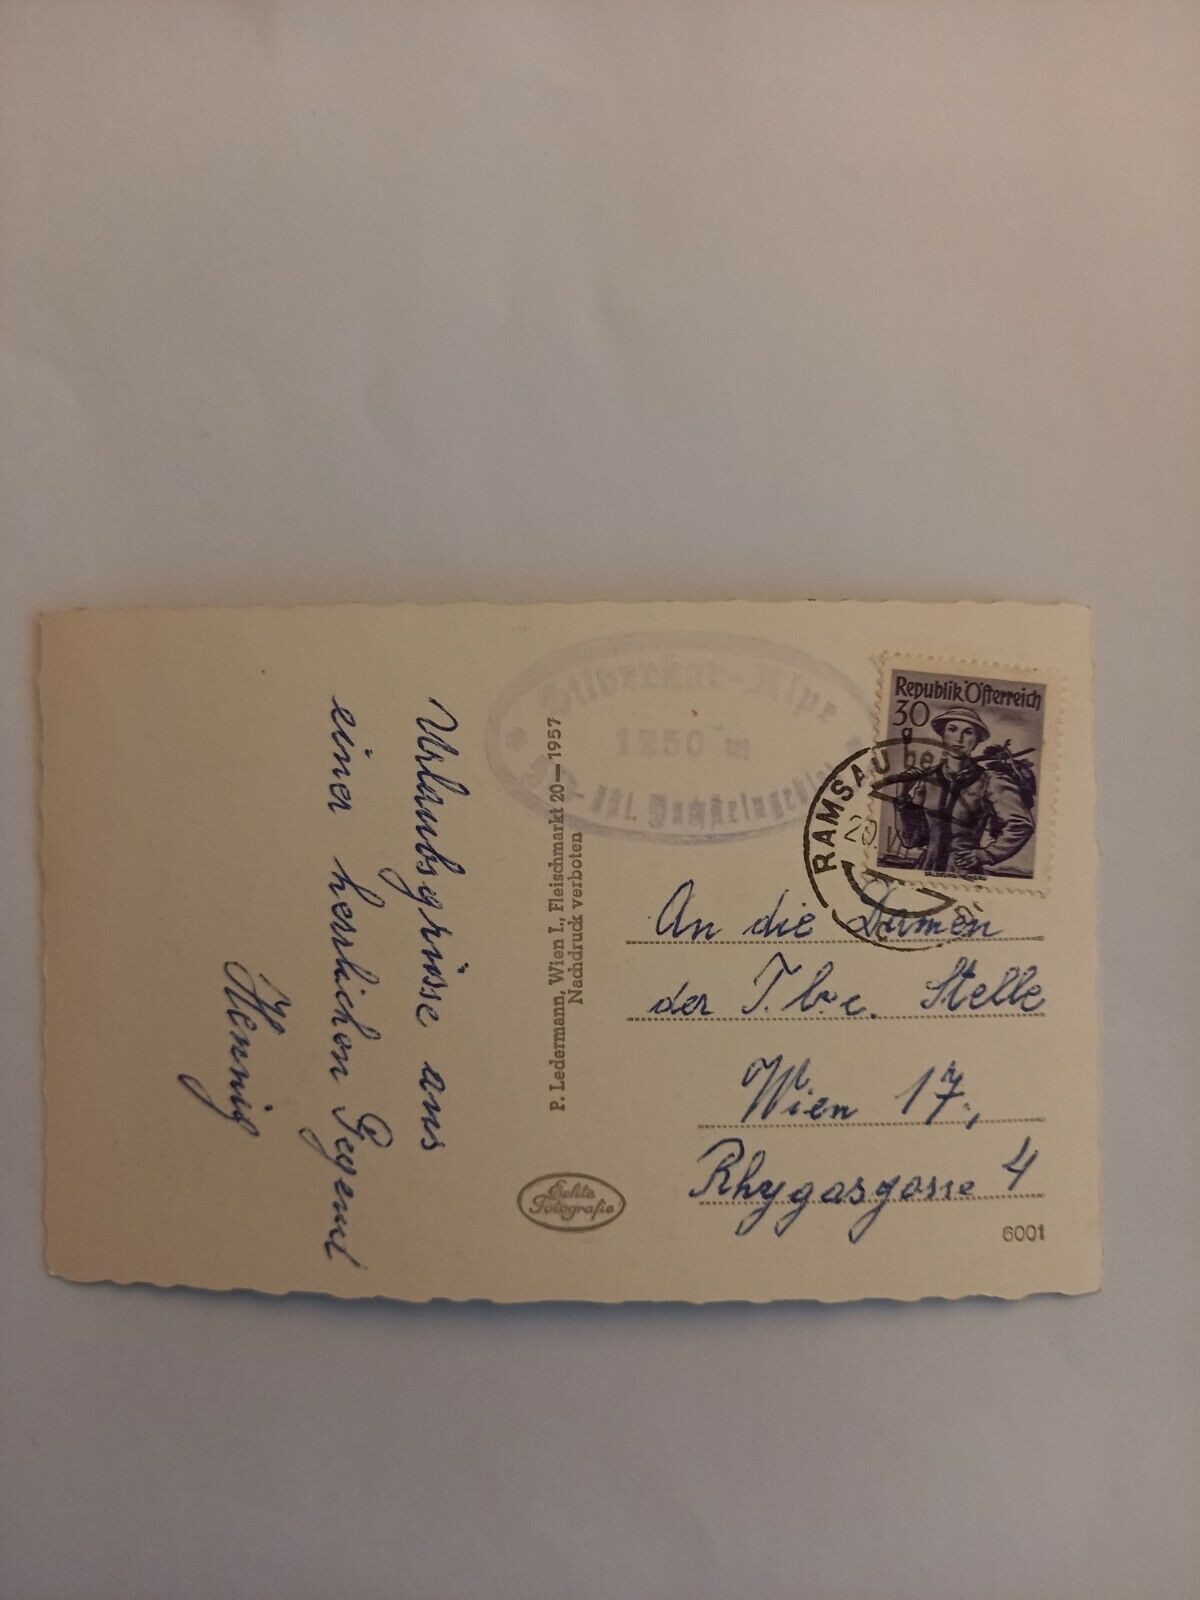 Urlaubsgrüsse aus
einer herrlichen Gegend
Hennig
P. Ledermann, Wien I., Fleischmarkt 20—1957
Nachdruck verboten
Echte
Fotografie
Silberkar-Alpe
1250 m
Republik Österreich
30
g
RAMSAU bei
20. VII
An die Damen
der T.b.c. Stelle
Wien 17.,
Rhygasgasse 4
6001